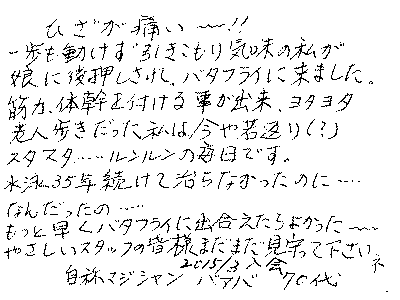 ひざが痛い〜〜!!
一歩も動けず引きこもり気味の私が
娘に後押しされ、バタフライに来ました。
筋力、体幹を付ける事が出来、ヨタヨタ
老人歩きだった私は今や若返り(?)
スタスタ……ルンルンの毎日です。
水泳35年続けて治らなかったのに……
なんだったの……
もっと早くバタフライに出合えたらよかった〜〜
やさしいスタッフの皆様まだまだ見守って下さいネ
2015/3入会
自称マジシャン バアバ 70代